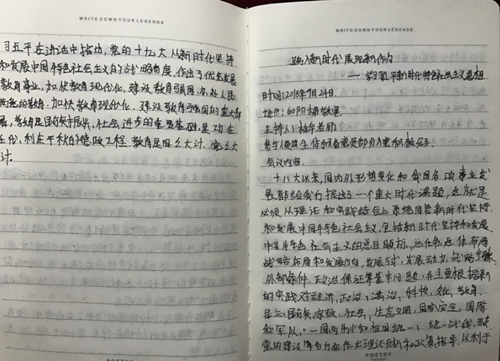 WRITE DOWN YOUR LEGENDS
习近平在讲话中指出,党的十九大从新时代坚持
和发展中国特色社会主义的战略高度,作出了优先发展
教育事业,加快教育现代化,建设教育强国
加快教育现代化,建设教育强国的重大部
社会进步的重要基石,是功在
德政工程 教育是国之大计,党之大
计。
WRITE DOWN YOUR LEGENDS
新时代 展现新作为
新时代特色社会主义思想
时间:2018年9月29日
地点:
主持人:
会议内容:
十八大以来,国内外形势变化和我国各项事业发
展都给我们提出了一个重大时代课题,这就是
必须从理论和实践结合上系统回答新时代坚持
和发展中国特色社会主义,包括新时代坚持和发展
中国特色社会主义的总目标,总任务总体布局
战略布局和发展方向,发展方式,发展动力,战略步骤
外部条件,政治保证等基本问题,并且要根据新
的实践对经济,政治,法治,科技,文化,教育,
民生,民族,宗教,社会,生态文明,国家安全,国防
和军队,"一国两制"和祖国统一,统一战线,
党的建设等各方面作出理论分析和政策指导,以利于
POETRY
POETRY